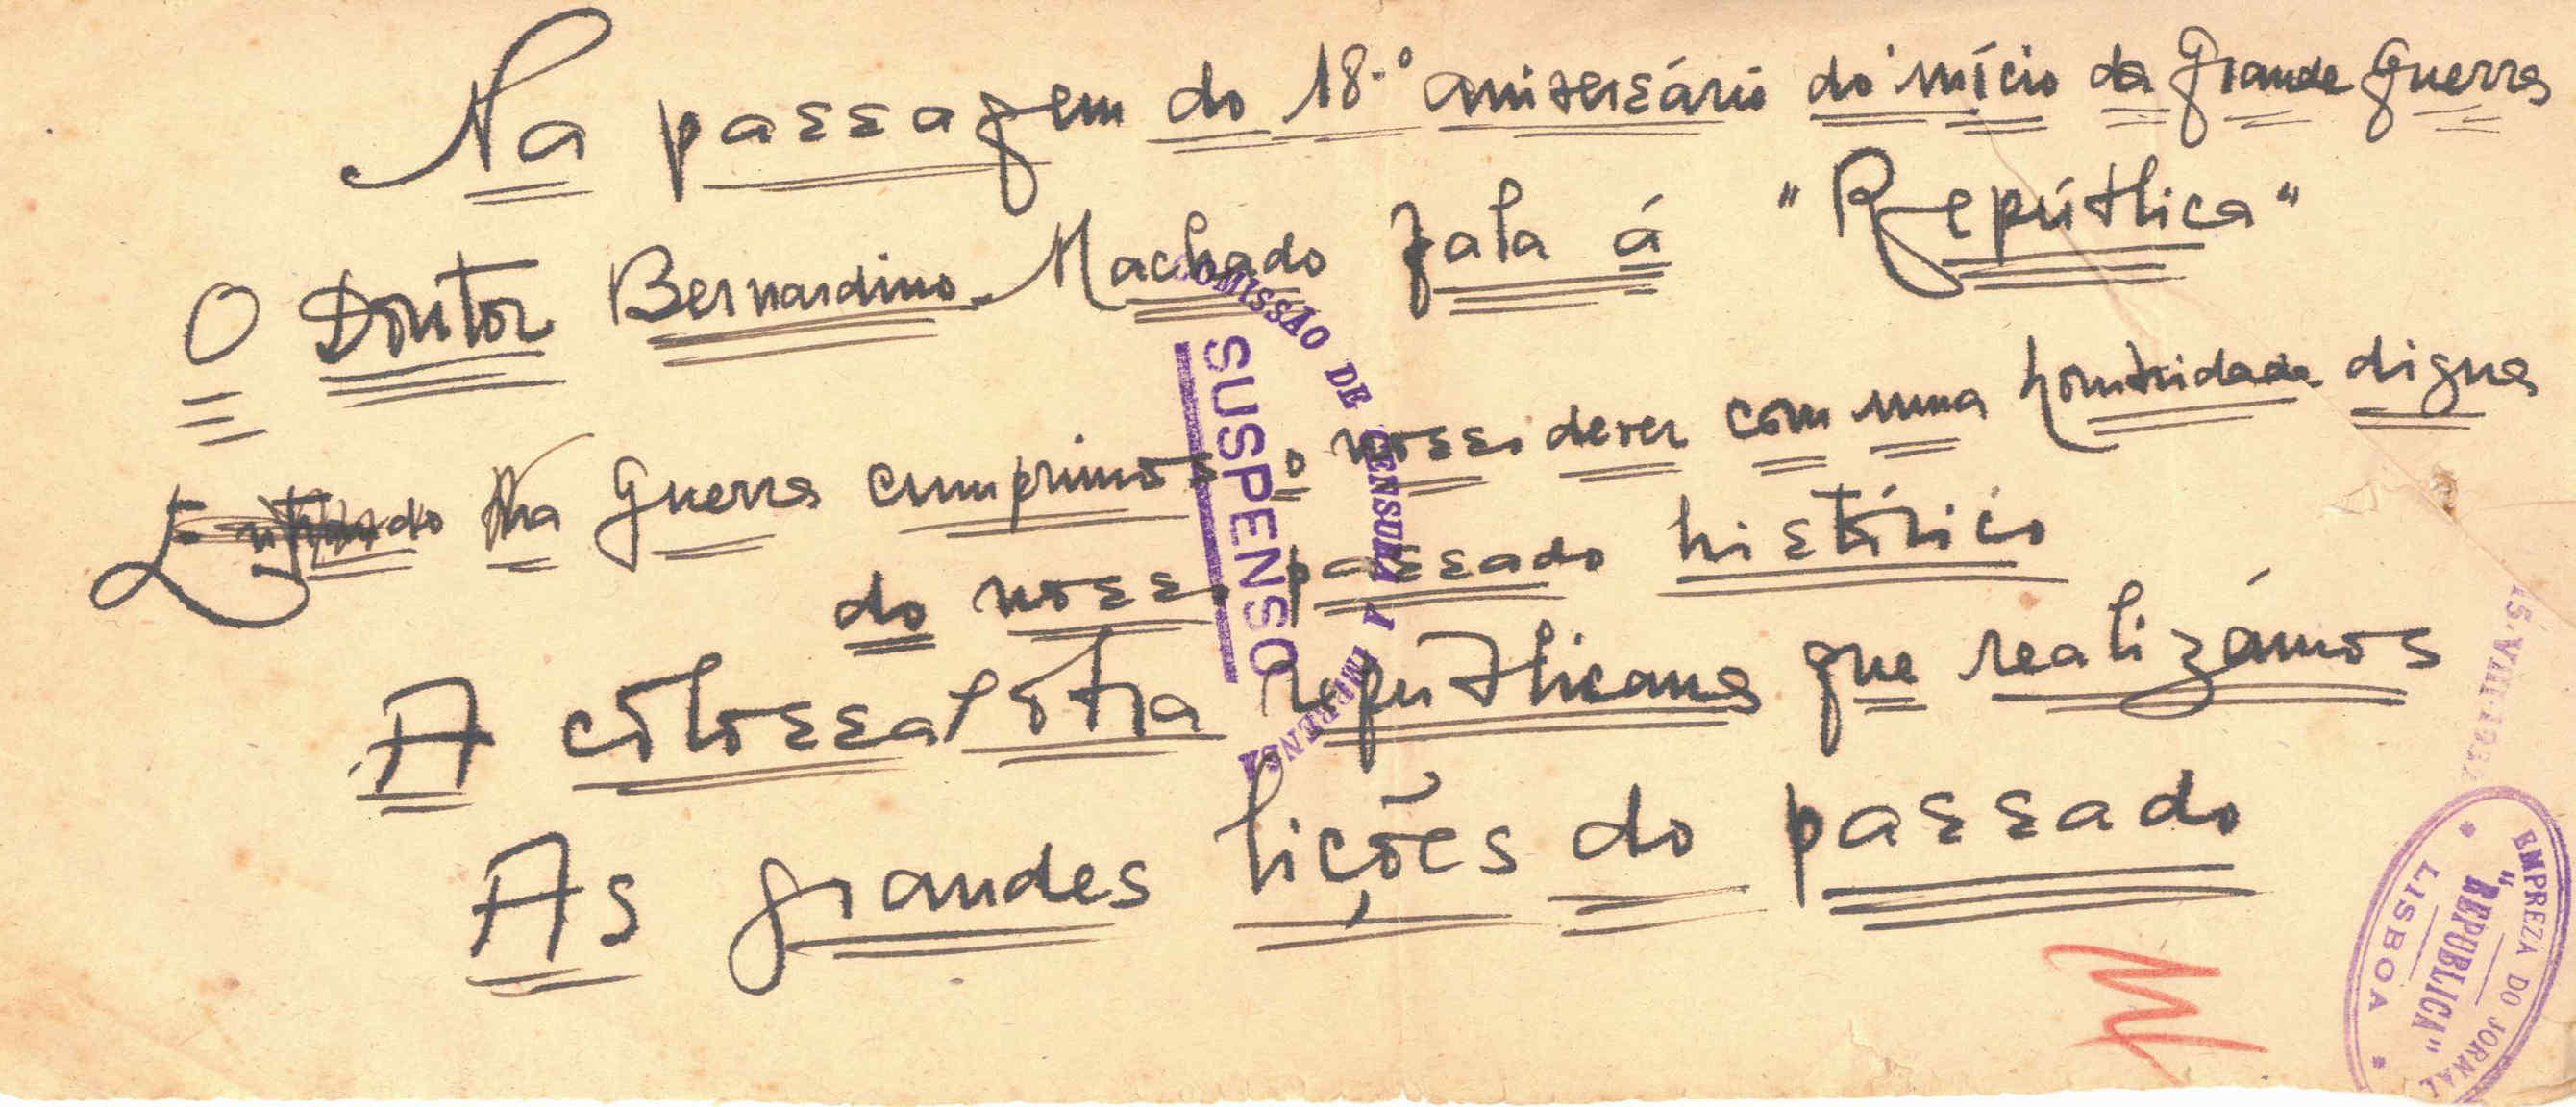 Na passagem do 18.º aniversário do início da Grande Guerra
O Doutor Bernardino Machado fala á "República"
Entrando na Guerra cumprimos o nosso dever com uma hombridade digna
do nosso passado histórico
A colossal obra republicana que realizámos
As grandes lições do passado
COMISSÃO DE CENSURA A IMPRENSA
SUSPENSO
EMPREZA DO JORNAL
"REPUBLICA"
LISBOA